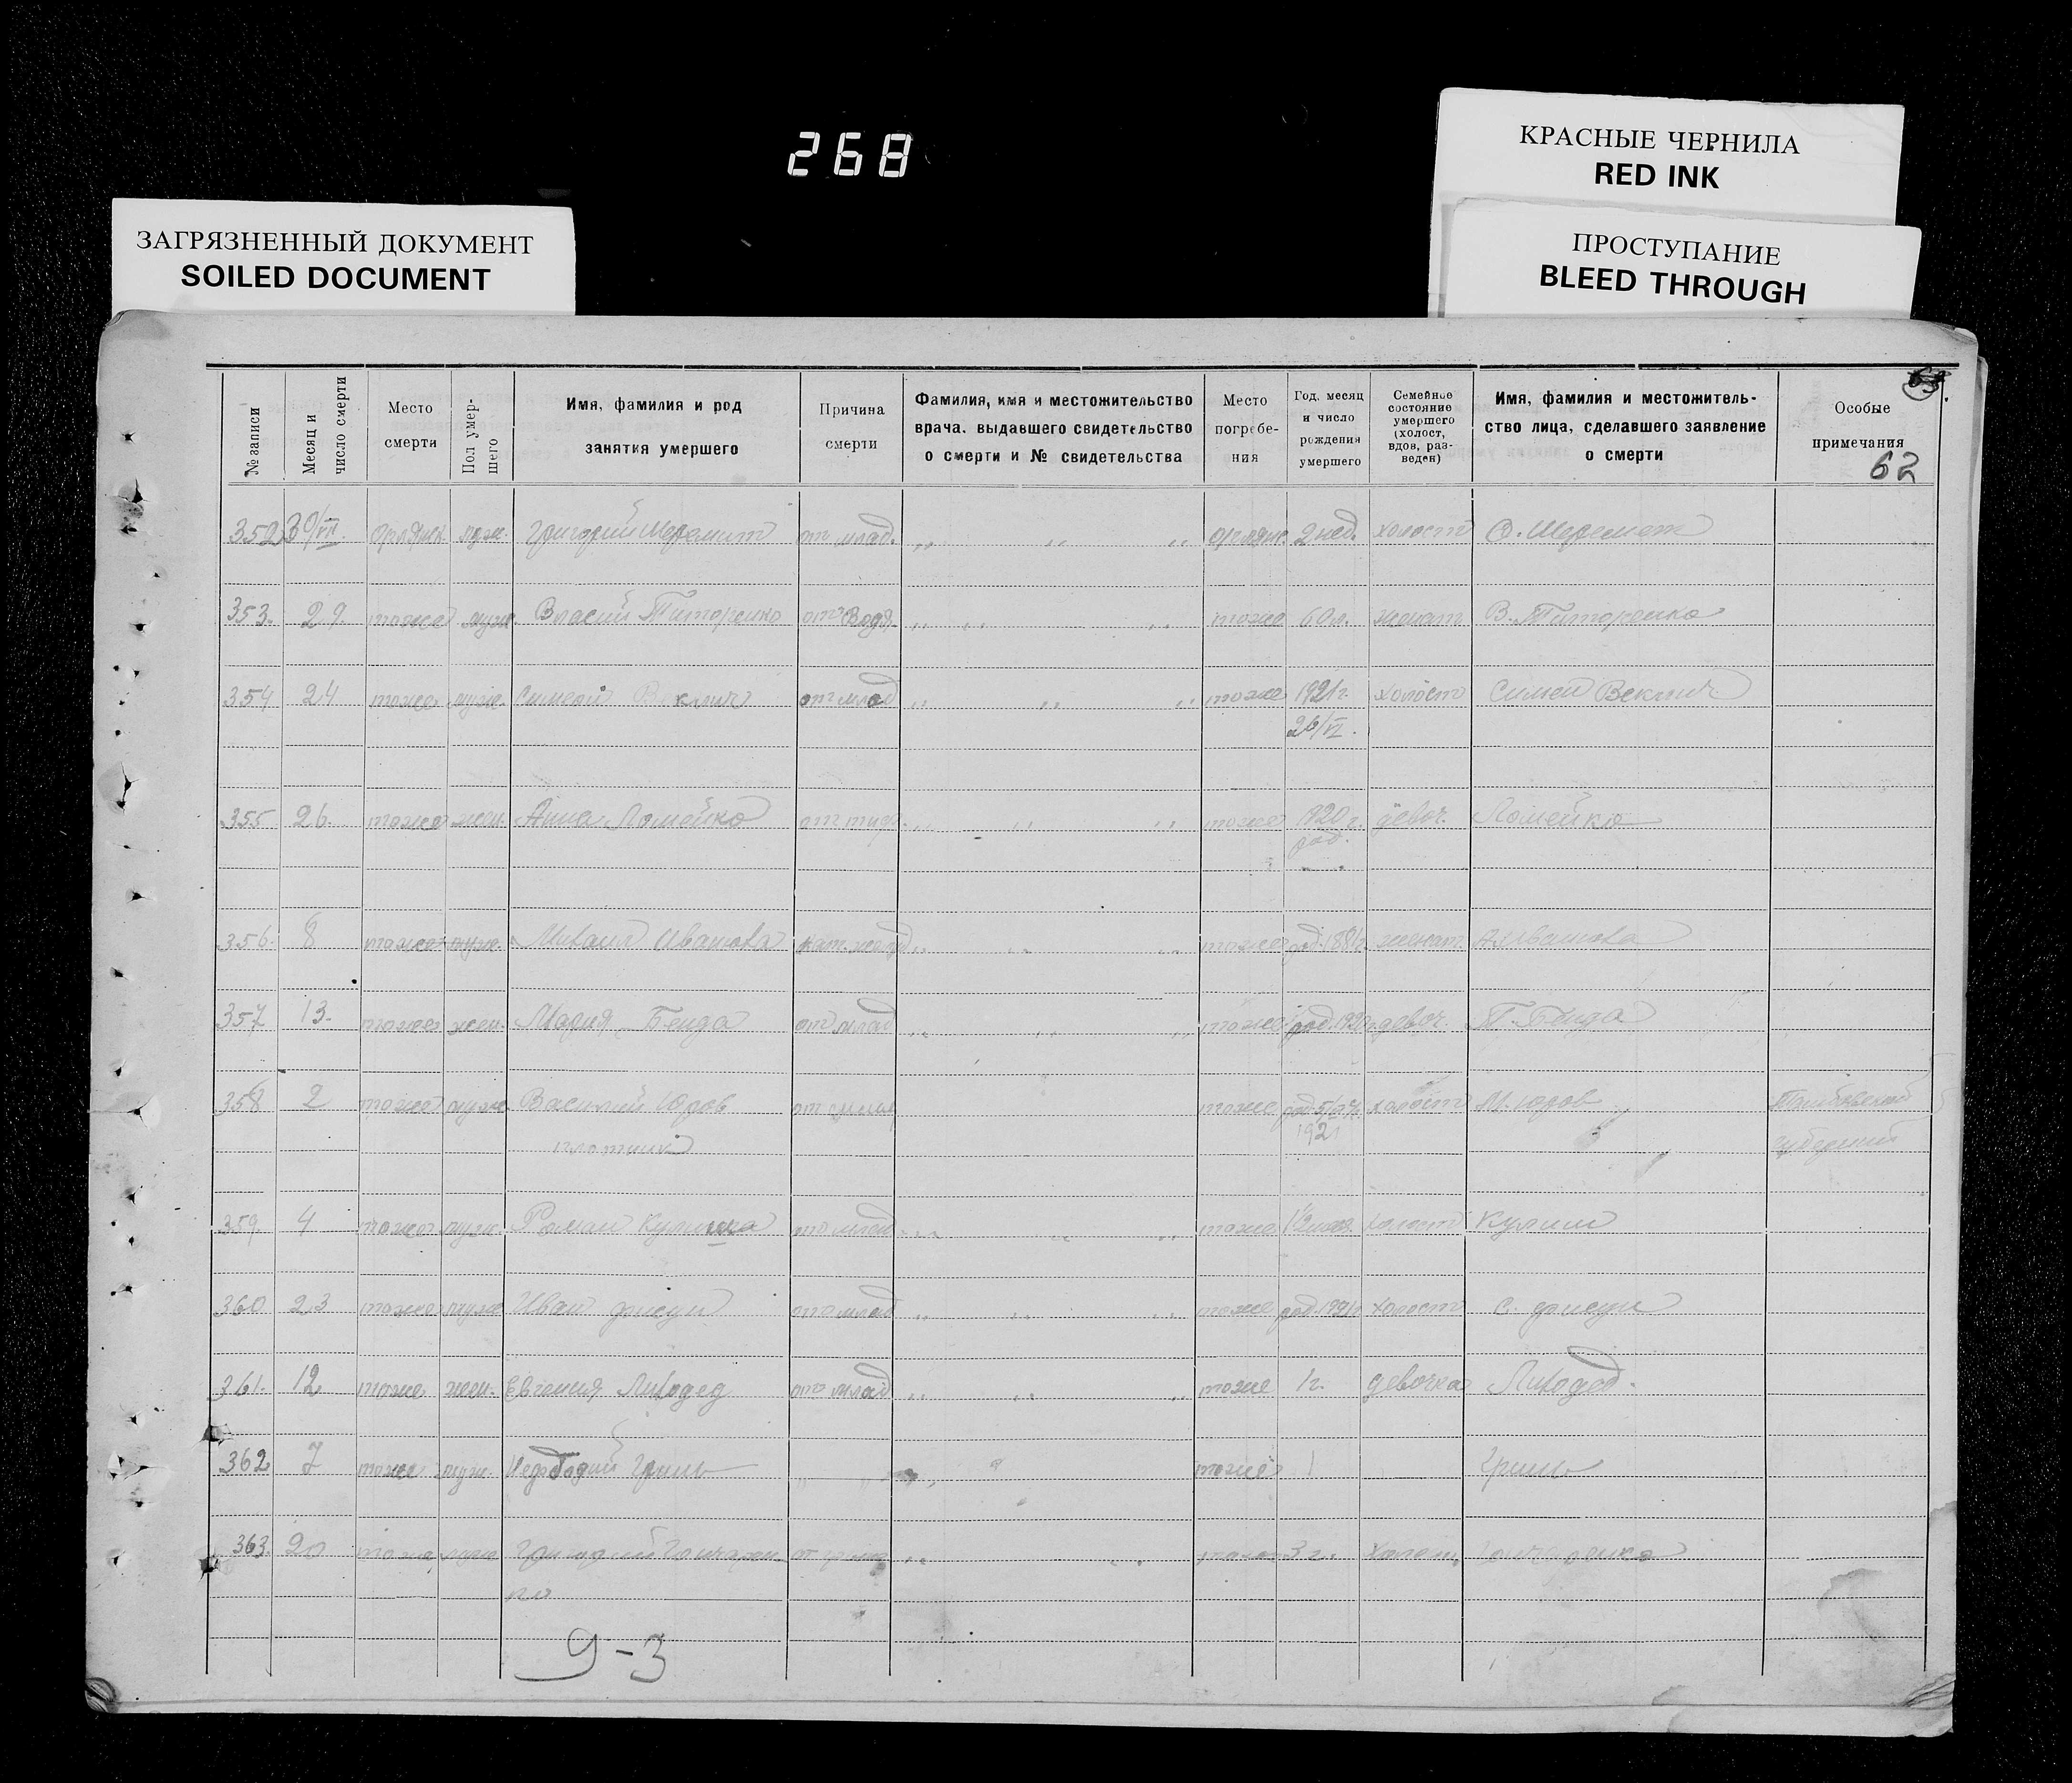 268
КРАСНЫЕ ЧЕРНИЛА
RED INK
ПРОСТУПАНИЕ
BLEED THROUGH
ЗАГРЯЗНЕННЫЙ ДОКУМЕНТ
SOILED DOCUMENT
№ записи
Месяц и число смерти
Место смерти
Пол умершего
Имя, фамилия и род занятия умершего
Причина смерти
Фамилия, имя и местожительство врача. выдавшего свидетельство о смерти и № свидетельства
Место погребения
Год, месяц и число рождения умершего
Семейное состояние умершего (холост, вдов, разведен)
Имя, фамилия и местожительство лица, сделавшего заявление о смерти
Особые примечания
62
352 30/VII муж. Григорий Шеремет от млад. „ „ „ 2 нед. холост О. Шеремет
353. 29. тоже муж. Власий Титаренко „ „ „ тоже 60 л. женат В. Титаренко
354 24 тоже муж. Симеон от млад „ „ „ тоже 1921 г. холост Симеон Веклич
26/VI.
355 26. тоже жен. Анна Ломейко „ „ „ тоже 1920 г. девоч. Ломейко
род.
356. 8 тоже муж. Михаил Ивашова „ „ „ тоже женат Ивашова
357 13. тоже жен. Мария Бенда от млад „ „ „ тоже род. девоч. П. Бенда
358 2 тоже муж Василий Юров тоже холост М. Юров Тамбовской
плотник 1921 губернии
359. 4 тоже муж. Роман от млад. „ „ „ тоже холост Кулиш
360 23 тоже муж Иван от млад „ „ „ тоже род. 1921 г. холост С.
361. 12 тоже жен. Евгения Лиходед от млад „ „ „ тоже 1 г. девочка Лиходед.
362 7 тоже муж. Гринь тоже 1 Гринь
363. 20 тоже муж Григорий Гончарен- „ „ тоже 3 г. холост Гончаренко
ко
9-3